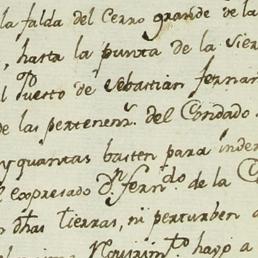 la falda del Cerro grande de la
, hasta la punta de la Sier
l Puesto de Sebastian fernan
de las pertenen.s del Condado
y quantas basten para inder
l expresado D.n fern.do de la C
dhas tierras, ni perturben a
hajo a